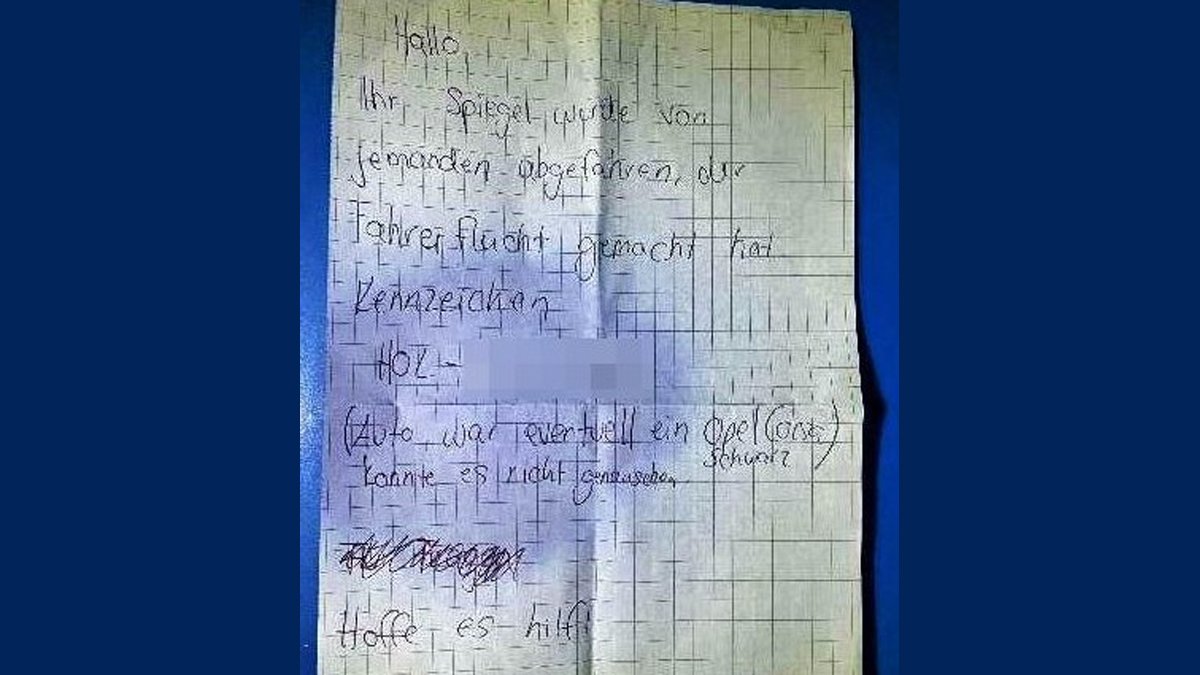 Hallo,
Ihr Spiegel wurde von
jemanden abgefahren, der
Fahrerflucht gemacht hat
Kennzeichen
HOL -
(Auto war eventuell ein Opel Corsa)
schwarz
konnte es nicht genau sehen
Hoffe es hilft